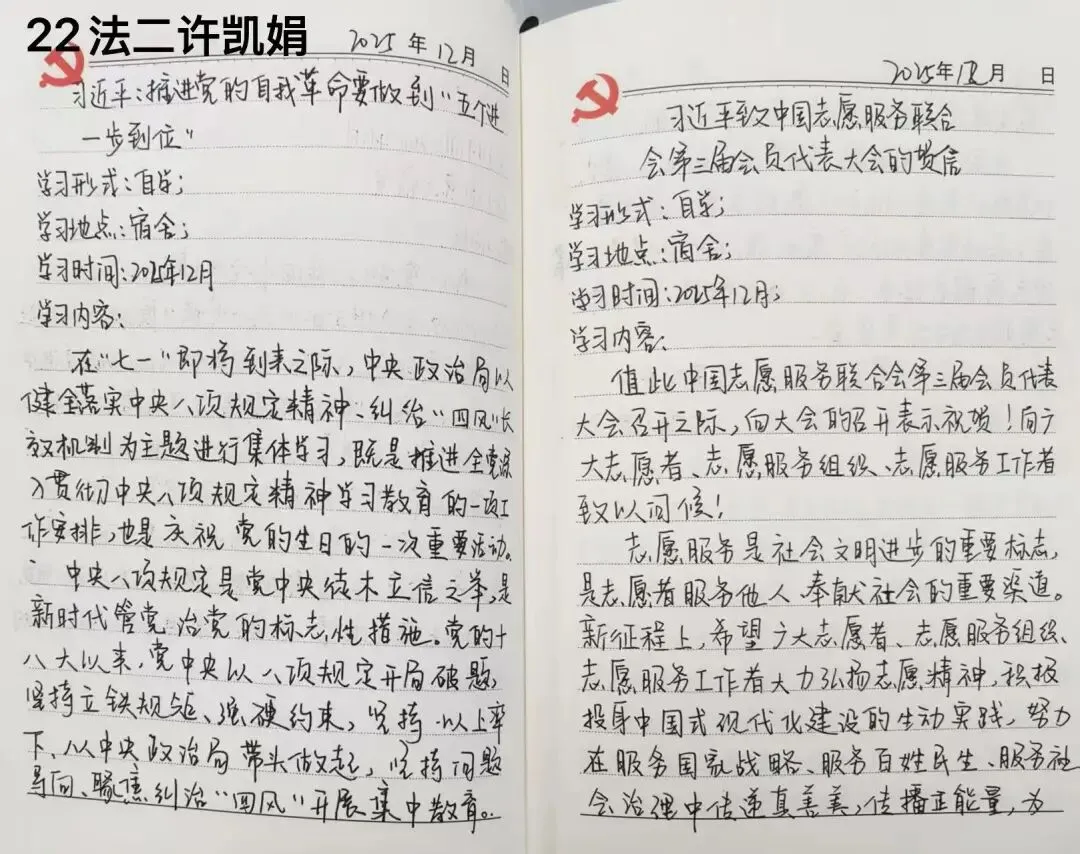 22法二许凯娟
2025年12月 日
习近平:推进党的自我革命要做到"五个进
一步到位"
学习形式:自学;
学习地点:宿舍;
学习时间:2025年12月
学习内容:
在"七一"即将到来之际,中央政治局以
健全落实中央八项规定精神、纠治"四风"长
效机制为主题进行集体学习,既是推进全党深
入贯彻中央八项规定精神学习教育的一项工
作安排,也是庆祝党的生日的一次重要活动。
中央八项规定是党中央徙木立信之举,是
新时代管党治党的标志性措施。党的十
八大以来,党中央以八项规定开局破题,
坚持立铁规矩、强硬约束,坚持以上率
下、从中央政治局带头做起,坚持问题
导向、聚焦纠治"四风"开展集中教育。
2025年12月 日
习近平致中国志愿服务联合
会第三届会员代表大会的贺信
学习形式:自学;
学习地点:宿舍;
学习时间:2025年12月;
学习内容:
值此中国志愿服务联合会第三届会员代表
大会召开之际,向大会的召开表示祝贺!向广
大志愿者、志愿服务组织、志愿服务工作者
致以问候!
志愿服务是社会文明进步的重要标志,
是志愿者服务他人、奉献社会的重要渠道。
新征程上,希望广大志愿者、志愿服务组织、
志愿服务工作者大力弘扬志愿精神,积极
投身中国式现代化建设的生动实践,努力
在服务国家战略、服务百姓民生、服务社
会治理中传递真善美,传播正能量,为